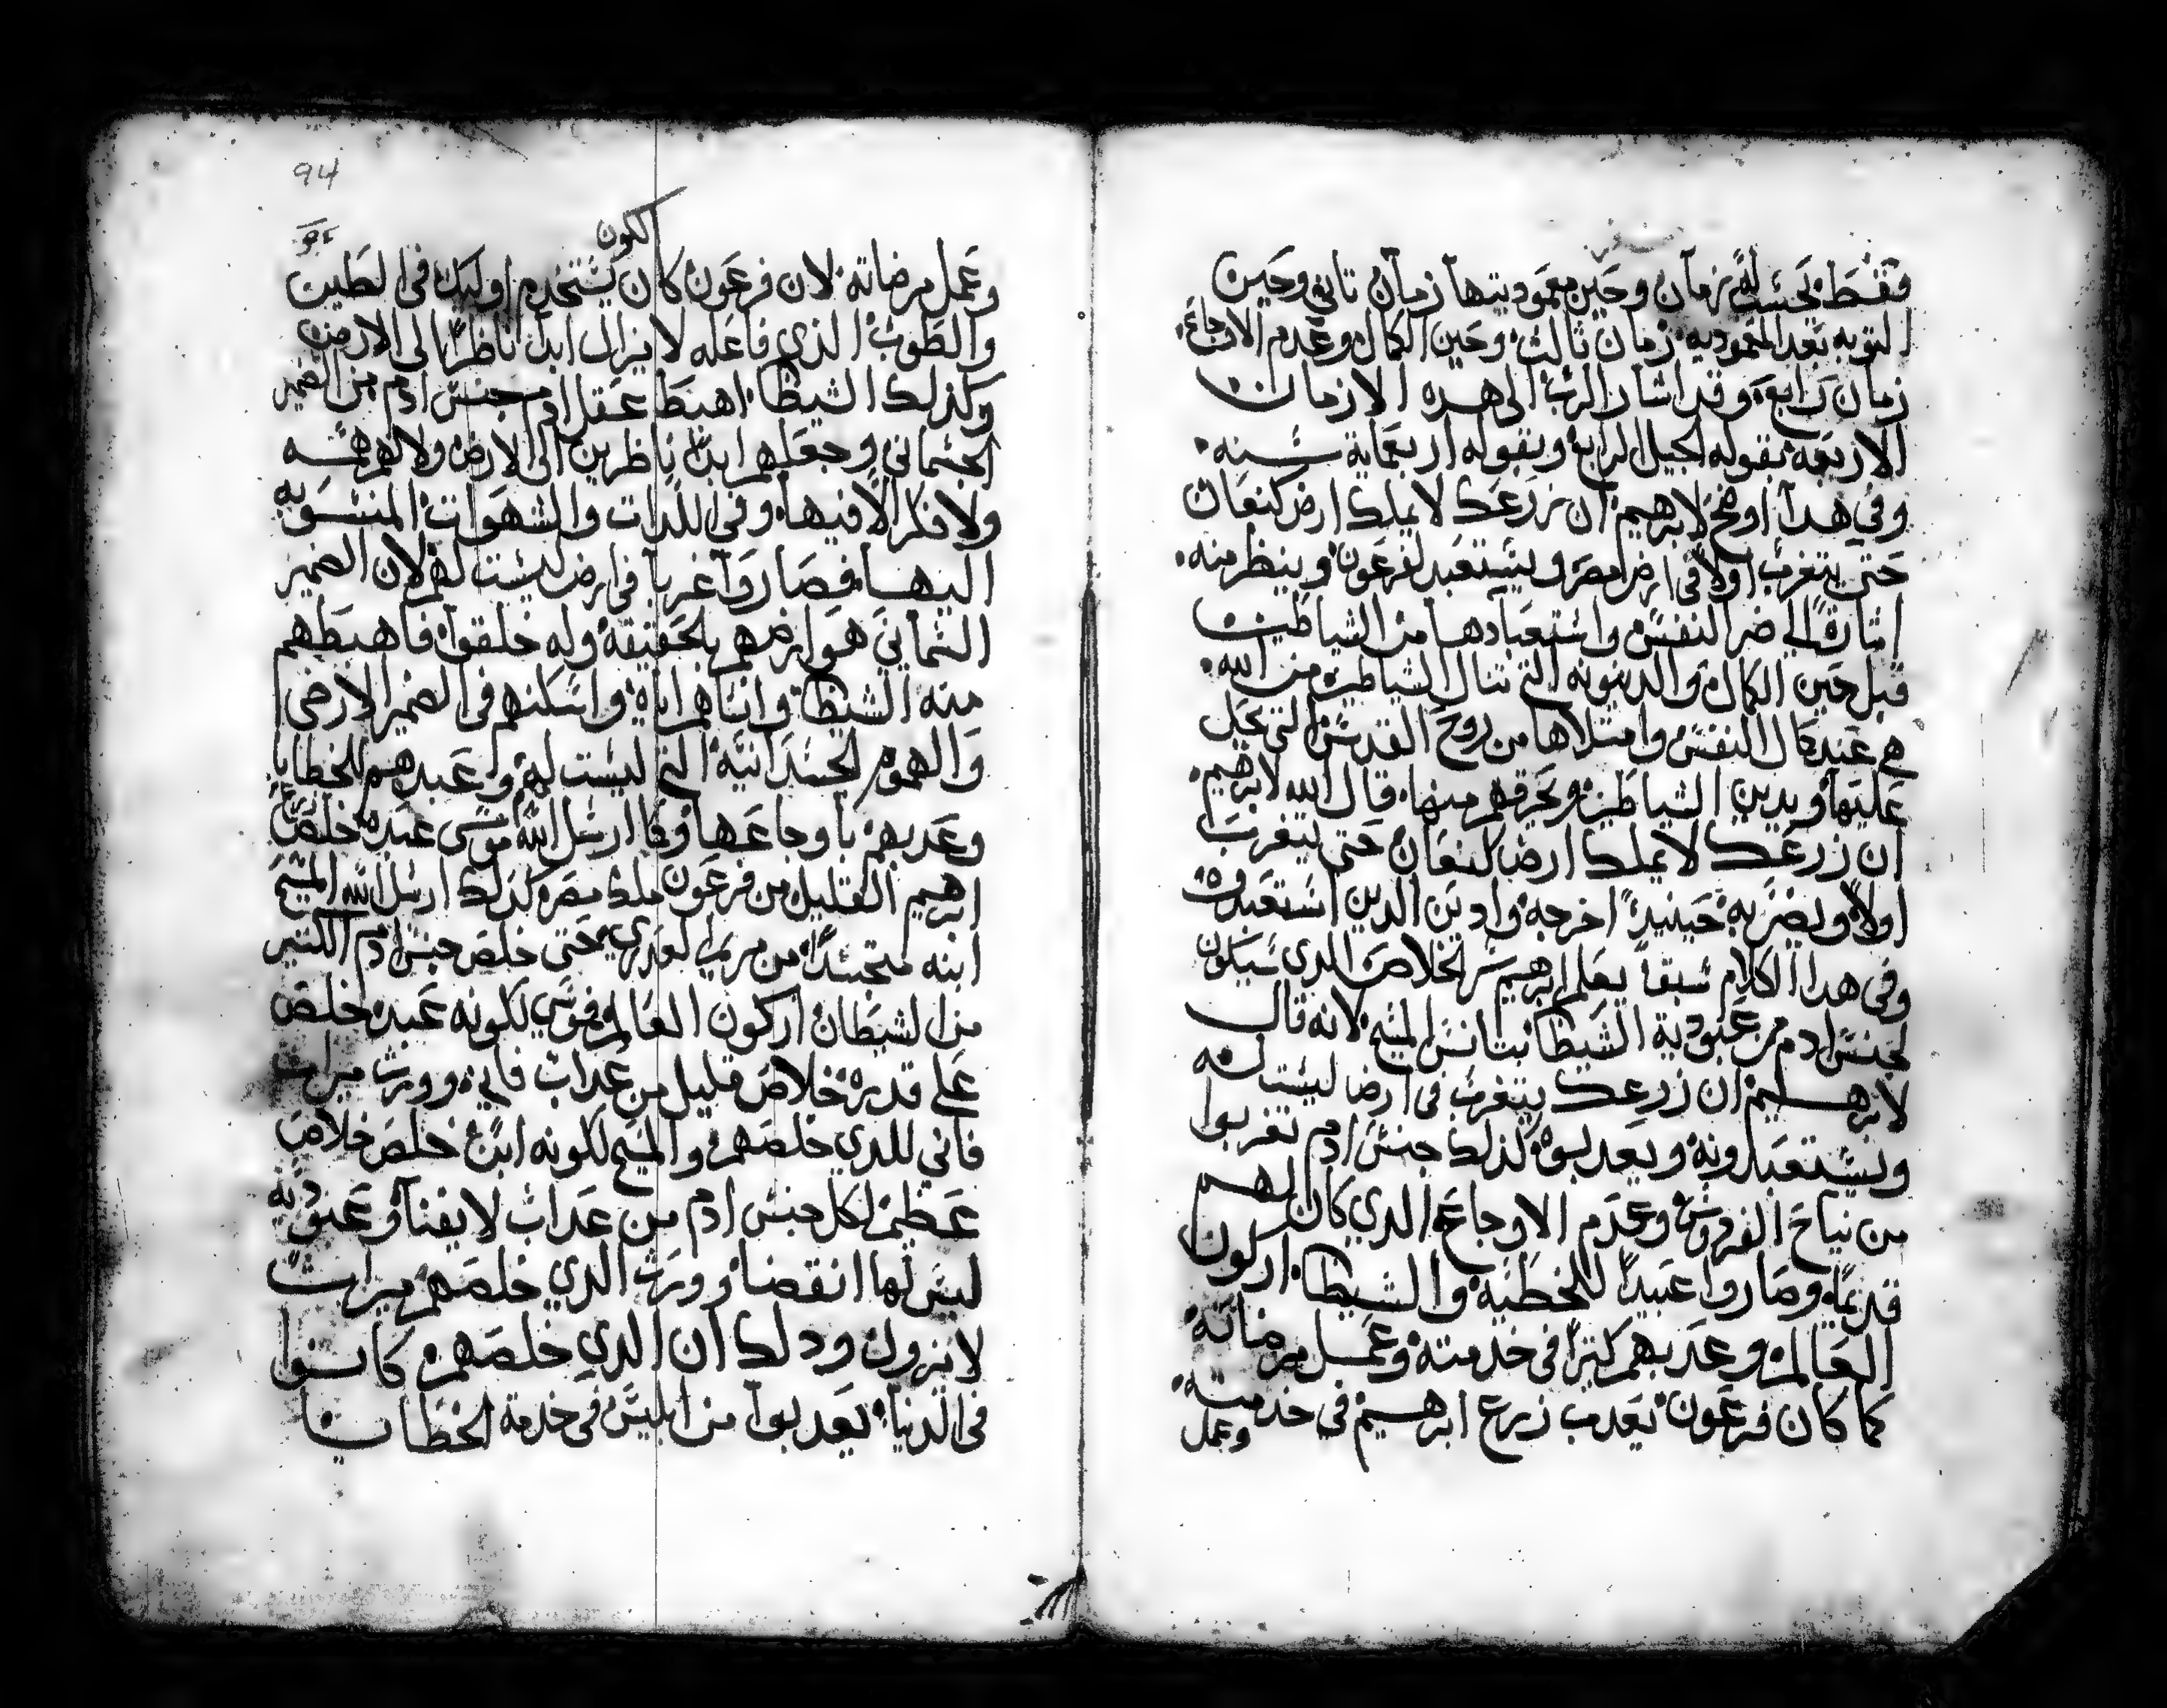 فقط يحسب له زمان وحين معموديتها زمان تاني وحين
التوبه بعد المعموديه زمان ثالث وحين الكمال وعدم الاوجاع
زمان رابع وقد اشار الرب الى هده الازمان
الاربعه بقوله الجيل الرابع وبقوله اربعماية سنه
وفي هدا اوضح لابرهيم ان زرعك لا يملك ارض كنعان
حتى يتغرب اولا في ارض مصر ويستعبد لفرعون وينظر منه
اشارة الى ضر النفس واستعبادها من الشياطين
قبل حين الكمال والدينونه التي تنال الشياطين من الله
هي عند كمال النفس وامتلاها من روح القدس التي تحل
عليها ويدين الشياطين ويحرقهم منها قال الله لابرهيم
ان زرعك لا يملك ارض كنعان حتى يتغرب
اولا ويضر به حينيد اخرجه وادين الدين استعبدوه
وفي هدا الكلام سبقا يعلم ابرهيم سر الخلاص الدي سيكون
لجنس ادم من عبودية الشيطا بتانس المسيح لانه قال
لابرهيم ان زرعك يتغرب في ارض ليست له
ويستعبدونه ويعدبوه كدلك جنس ادم تغربوا
من نياح الفردوس وعدم الاوجاع الدي كان لهم
قديما وصاروا عبيدا للخطيه والشيطا اركون
العالم وعدبهم كتيرا في خدمته وعمل مرضاته
كما كان فرعون يعدب زرع ابرهيم في خدمته
وعمل
94
لكون
وعمل مرضاته لان فرعون كان يستخدم اوليك في الطين
والطوب الذي فاعله لا يزال ابدا ناظرا الى الارض
وكذلك الشيطا اهبط عقل ادم جنس ادم من الضمير
الجسماني وجعلهم ابدا ناظرين الى الارض ولا لهم همه
ولا فكر الا فيها وفي اللدات والشهوات المنسوبه
اليها فصاروا غربا في ارض ليست لهم لان الضمير
السماني هو ارضهم بالحقيقه وله خلقوا فاهبطهم
منه الشيطا وانساهم اياه واسكنهم في الضمير الارضي
والهموم الجسدانيه التي ليست له وعبدهم للخطايا
وعدبهم باوجاعها وكما ارسل الله موسى عبده خلص
ابرهيم القليل من فرعون ملك مصر كدلك ارسل الله المسيح
ابنه متجسدا من مريم العدرى حتى خلص جنس ادم الكتير
من الشيطان اركون العالم فموسي لكونه عبد خلص
على قدره خلاص قليل من عداب فاني وورث ميرات
فاني للدي خلصهم والمسيح لكونه ابن خلص خلاص
عظيم لكل جنس ادم من عداب لا يفنا وعبوديه
ليس لها انقضا وورث الدي خلصهم ميرات
لا يزول ودلك ان الدي خلصهم كانوا
في الدنيا يعدبوا من ابليس في خدمة الخطايا